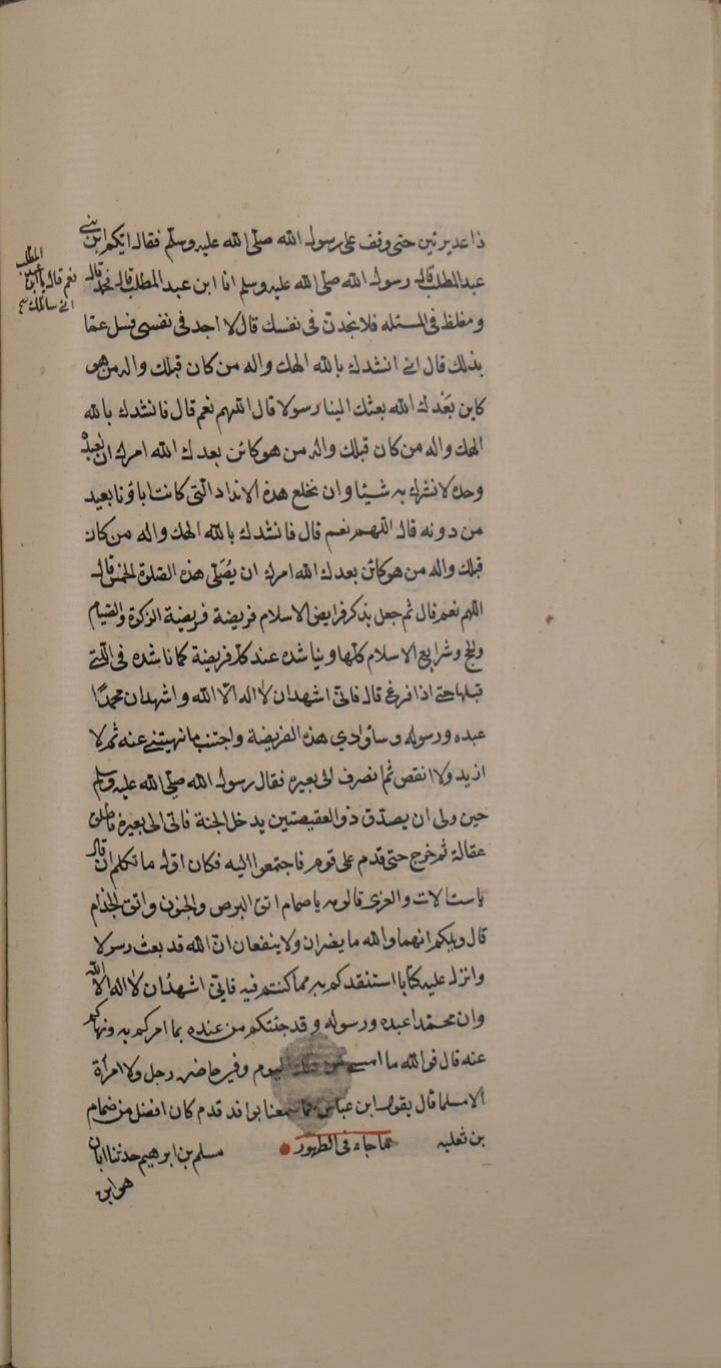 ذا غديرتين حتى وقف على رسول الله صلى الله عليه وسلم فقال ايكم ابن
عبد المطلب قال رسول الله صلى الله عليه وسلم انا ابن عبد المطلب قال محمد قال
نعم قال يا ابن عبد المطلب
اني سائلك
ومغلظ في المسئله فلا تجدن في نفسك قال لا اجد في نفسي فسل عما
بذلك قال اني انشدك بالله الهك واله من كان قبلك واله من هو
كاين بعدك الله بعثك الينا رسولا قال اللهم نعم قال فانشدك بالله
الهك واله من كان قبلك واله من هو كائن بعدك الله امرك ان نعبده
وحده لا نشرك به شيئا وان نخلع هذه الانداد التي كانت اباؤنا بعيد
من دونه قال اللهم نعم قال فانشدك بالله الهك واله من كان
قبلك واله من هو كائن بعدك الله امرك ان يصلى هذه الصلوة الخمس قال
اللهم نعم قال ثم جعل يذكر فرايض الاسلام فريضة فريضة الزكوة والصيام
والحج وشرايع الاسلام كلها ويناشده عند كل فريضة كما ناشده في التي
قبلها حتى اذا فرغ قال فاني اشهد ان لا اله الا الله واشهد ان محمدا
عبده ورسوله وساؤدي هذه الفريضة واجتنب ما نهيتني عنه ثم لا
ازيد ولا انقص ثم انصرف الى بعيره فقال رسول الله صلى الله عليه وسلم
حين ولى ان يصدق ذو العقيصتين يدخل الجنة فاتى الى بعيره فاطلق
عقاله ثم خرج حتى قدم على قومه فاجتمعوا اليه فكان اول ما تكلم ان قال
باست اللات والعزى قالوا مه يا ضمام اتق البرص والجنون واتق الجذام
قال ويلكم انهما والله ما يضران ولا ينفعان ان الله قد بعث رسولا
وانزل عليه كتابا استنقذكم به مما كنتم فيه فاني اشهد ان لا اله الا الله
وان محمدا عبده ورسوله وقد جئتكم من عنده بما امركم به ونهاكم
عنه قال فوالله ما امسى من ذلك اليوم وفي حاضره رجل ولا امرأة
الا مسلما قال يقول ابن عباس فما سمعنا بوافد قدم كان افضل من ضمام
بن ثعلبه ما جاء في الطهور مسلم بن ابرهيم حدثنا ابان
هو ابن